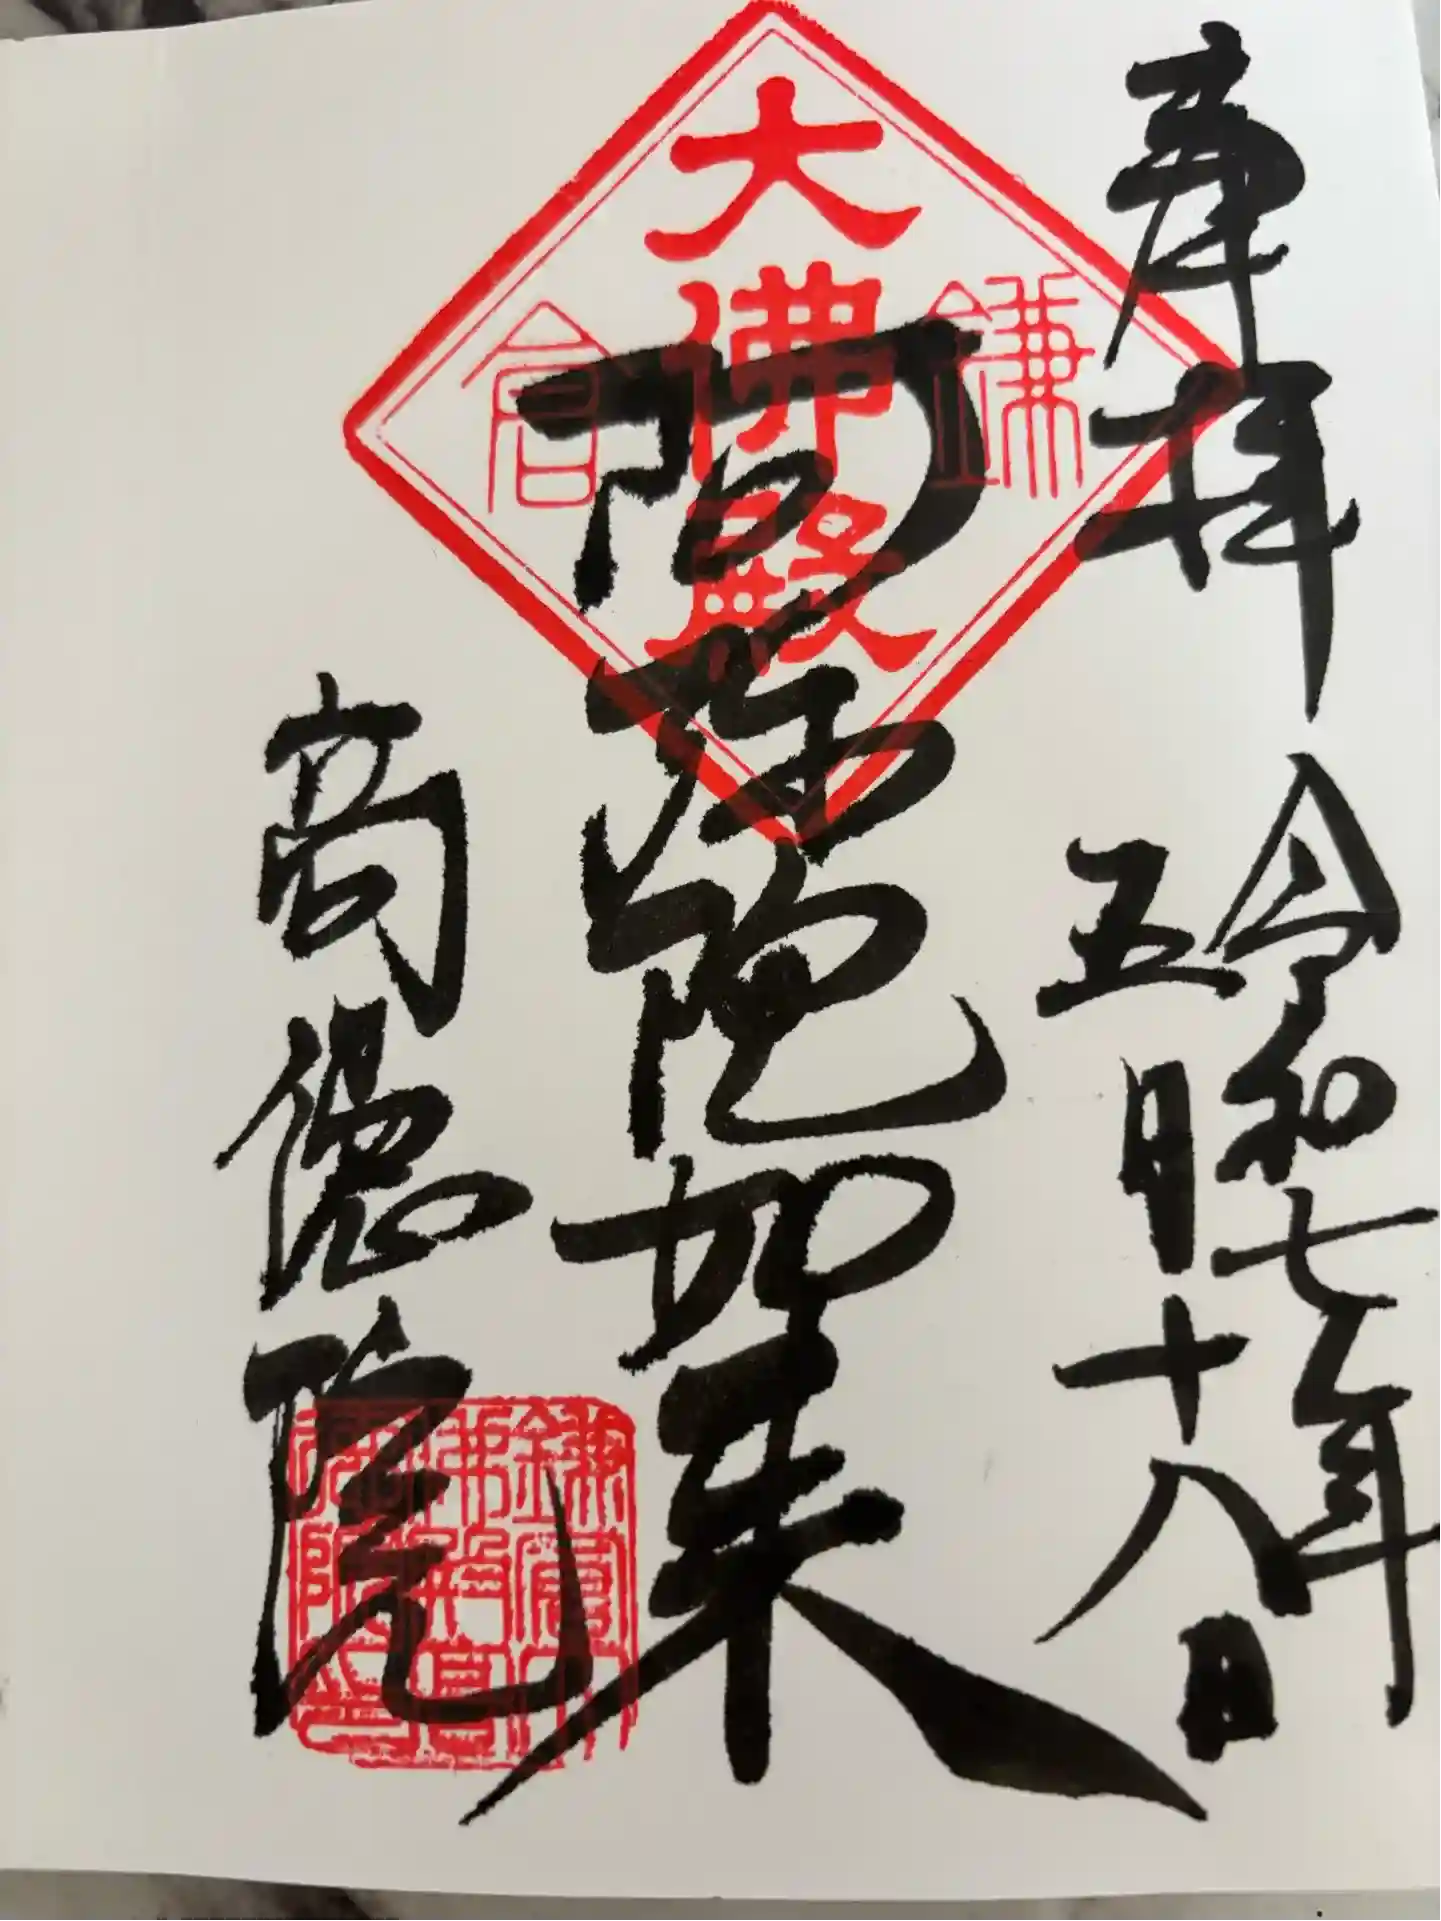 奉拝
令和七年
五月十八日
大佛殿
鎌倉
阿弥陀如来
高徳院
鎌倉大
佛殿高
徳院印